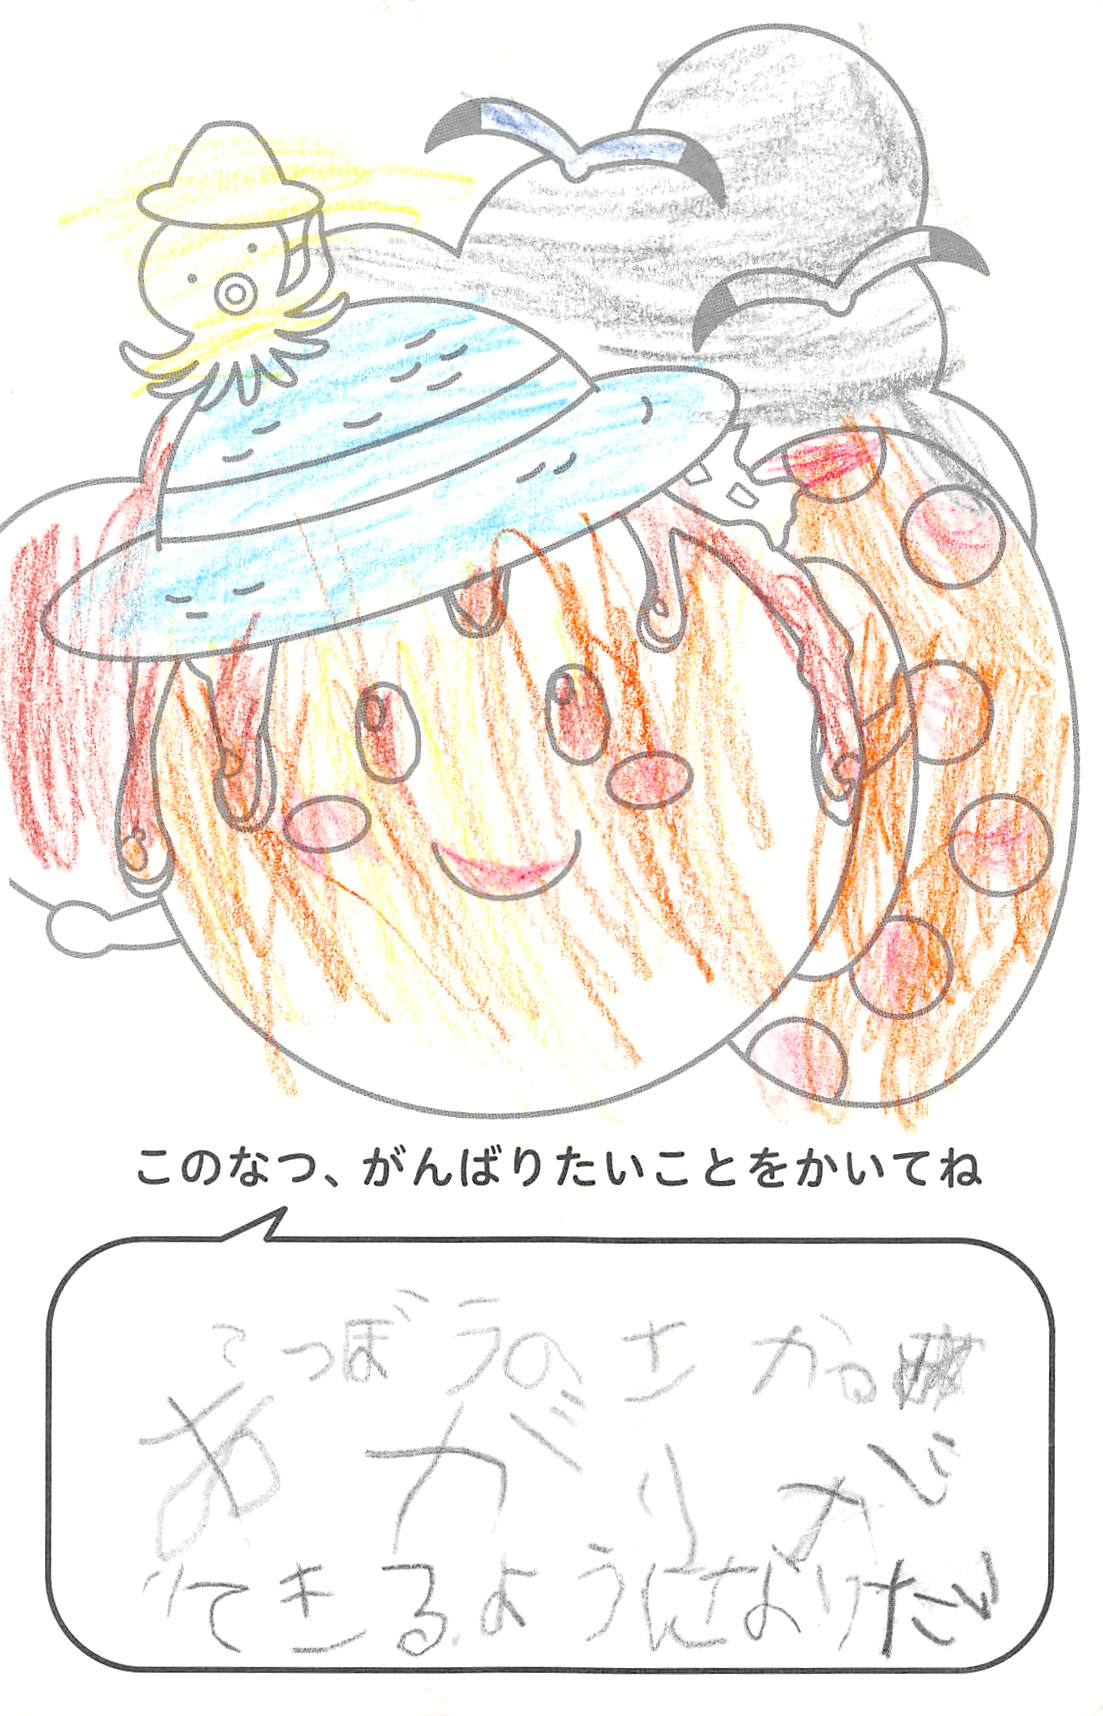 このなつ、がんばりたいことをかいてね
てつぼうのさかる
あがりがじ
りてきるようになりたい